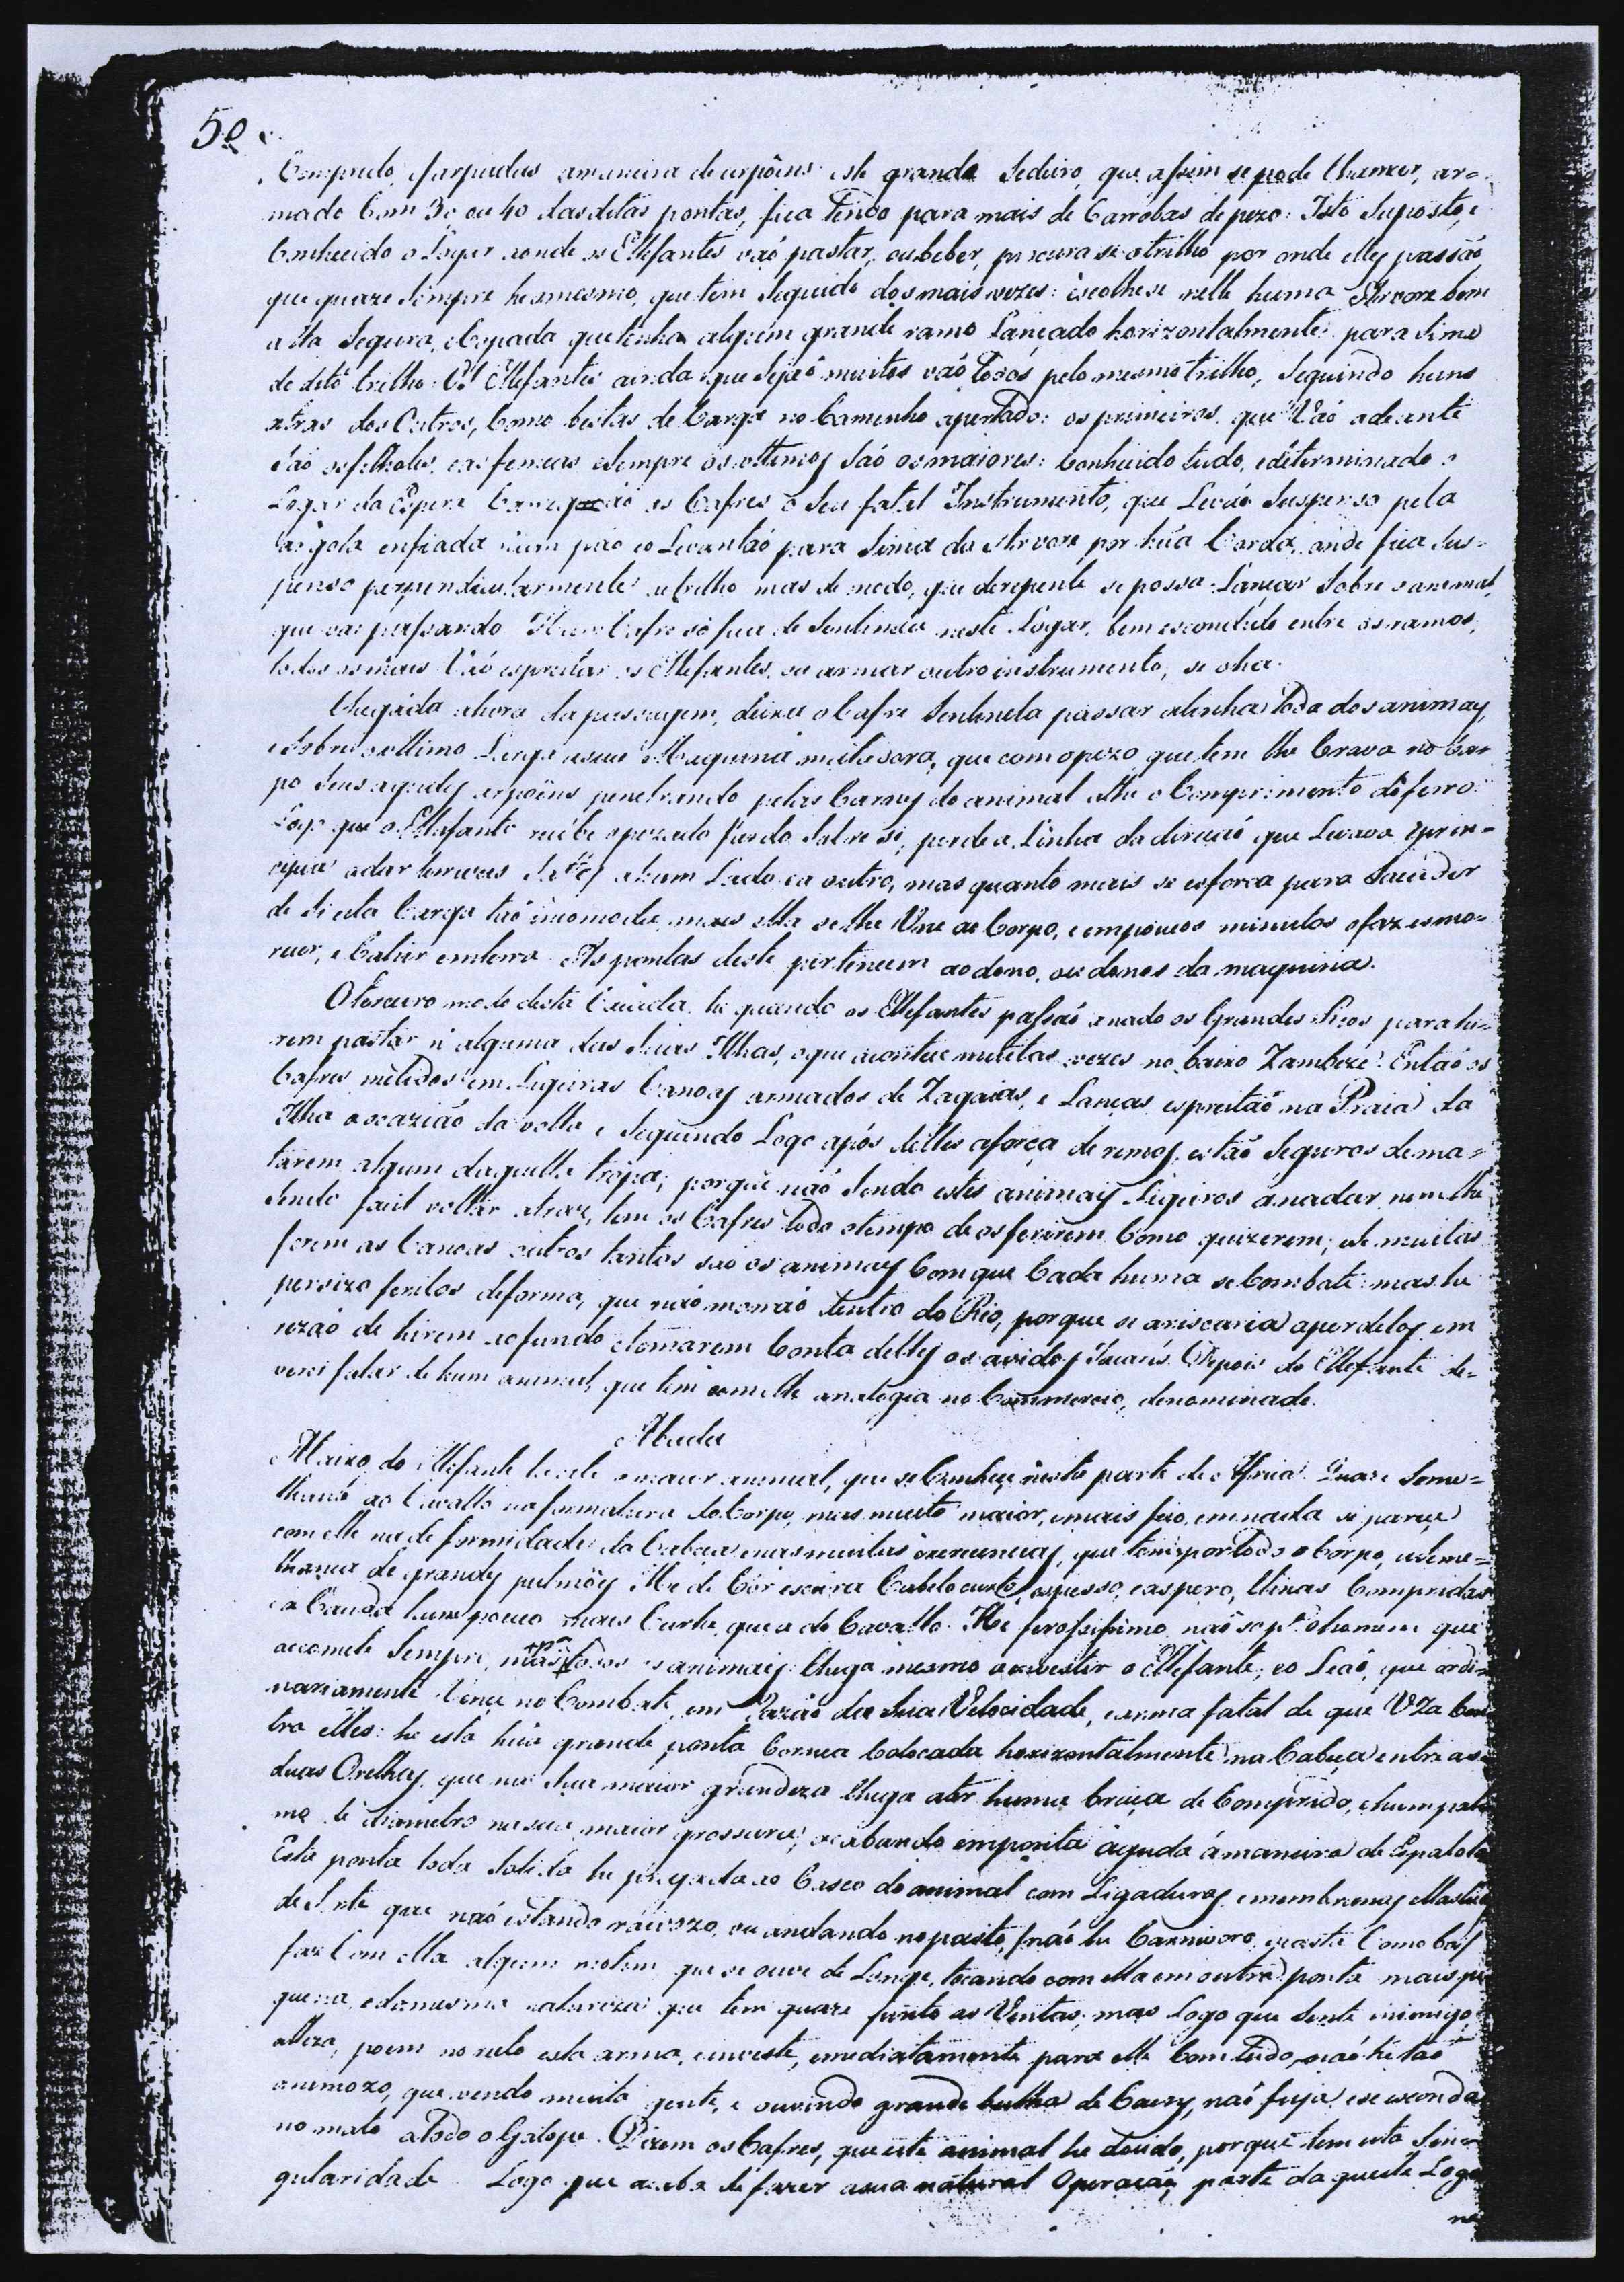 50
Comprido, farpadas amaneira de arpôins: este grande Sedeiro, que assim se pode Chamar, ar=
mado Com 30, ou 40 das ditas pontas, fica Tendo para mais de 6 arrobas de pezo: Isto Suposto, e
Conhecido o Lugar aonde os Ellefantes vaõ pastar, ou beber, procura se o trilho por onde elles passaõ
que quaze Sempre he o mesmo, que tem Seguido dos mais vezes: escolhe se nelle huma Arvore bem
alta Segura, e Copada que tenha algum grande ramo Lançado horizontalmente para Sima
do dito trilho. Os Ellefantes ainda que Sejaõ muitos vaõ Todos pelo mesmo trilho, Seguindo huns
atras dos Outros, Como bestas de Carga no Caminho apertado: os primeiros que Vaõ adeante
Saõ os filhotes, e as femeas e Sempre os ultimos Saõ os maiores: Conhecido tudo, e determinado o
Lugar da Espera Carregaõ os Cafres o Seu fatal Instrumento, que Levaõ Suspenso pela
argola enfiada num páo e o Levantaõ para Sima da Arvore por hũa Corda, onde fica Sus=
penso perpendicularmente ao trilho mas de modo, que derepente se possa Lançar Sobre o animal,
que vai passando. Hum Cafre só fica de Sentinela neste Lugar, bem escondido entre os ramos,
todos os mais Vaõ espreitar os Ellefantes, ou armar outro instrumento, se o ha.
Chegada ahora da passagem, deixa o Cafre Sentinela passar a linha Toda dos animaes,
e Sobre o ultimo Larga a sua Maquina, que com o pezo que tem lhe Crava no Cor
po Seus agudos arpoins penetrando pelas Carnes do animal athe o Comprimento do ferro.
Logo que o Ellefante recebe o pezado fardo Sobre Si, perde a Linha da direcaõ que Levava e prin=
cipia a dar terriveis a hum Lado e a outro, mas quanto mais se esforca para Sacudir
de Si esta Carga taõ incomoda, mais ella se lhe Une ao Corpo, e em poucos minutos o faz esmo=
recer, e Cahir em terra. As pontas deste pertencem ao dono, ou donos da maquina.
O terceiro modo desta Caçada he quando os Ellefantes passaõ a nado os Grandes Rios para hi=
rem pastar n'alguma das Suas Ilhas, o que acontece muitas vezes no baixo Zambeze. Entaõ os
Cafres metidos em Ligeiras Canoas armados de Zagaias, e Lanças espreitaõ na Praia da
Ilha a ocaziaõ da volta e Seguindo Logo após delles aforça de remos, estaõ Seguros de ma=
tarem algum daquella tropa; porque naõ Sendo estes animais Ligeiros a nadar, nem lhe
Sendo facil voltar atraz, tem os Cafres Todo o tempo de os ferirem Como quizerem; e Se muitas
forem as Canoas outros tantos saõ os animaes Com que Cada huma se Combate: mas he
percizo feri los de forma, que naõ morraõ dentro do Rio, porque se ariscaria a perdelos em
razaõ de hirem ao fundo e tomarem Conta delles os avidos Jacarés. Depois do Ellefante de=
verei falar de hum animal, que tem com elle analogia no Commercio, denominado.
Abada
Abaixo do Ellefante he este o maior animal, que se Conhece nesta parte de Africa. Quaze Seme=
lhante ao Cavallo na formatura do Corpo, mas muito maior, e mais feio, em nada se parece
com elle na deformidade da Cabeca, e nas muitas excrecencias, que tem por Todo o Corpo, a Seme=
lhança de grandes pulmões. He de Cor escura Cabelo curto, espesso, e aspero, Clinas Compridas
e a Cauda hum pouco mais Curta, que a do Cavallo. He ferossissimo naõ só pª o homem que
acomete Sempre, mas pª Todos os animais. Chega mesmo a envestir o Ellefante, e o Leaõ, que ordi=
nariamente Vence no Combate, em Razaõ da Sua Velocidade, e arma fatal de que Uza Con
tra elles: he esta hũa grande ponta Cornea Colocada horizontalmente na Cabeça entre as
duas Orelhas, que na Sua maior grandeza Chega a ter huma braça de Comprido, e hum pal
mo de diametro na sua maior grossura, acabando em ponta aguda ámaneira de Espalote
Esta ponta toda Solida he pregada ao Casco do animal com Ligaduras, e membranas
de Sorte que naõ estando raivozo, ou andando no pasto, (naõ he Carnivoro, pasta Como boi)
faz Com ella algum motim que se ouve de Longe, tocando com ella em outra ponta mais pe
quena, e da mesma natureza que tem quaze junto as Ventas; mas Logo que Sente inimigo
poem no recto esta arma, e investe, emediatamente para elle. Com tudo, naõ he taõ
animozo, que vendo muita gente, e ouvindo grande bulha de Caens, naõ fuja, e se esconda
no mato a Todo o Galope. Dizem os Cafres, que este animal he doudo, porque tem esta Sin=
gularidade. Logo que acaba de fazer a sua natural Operacaõ, parte daquelle Logar